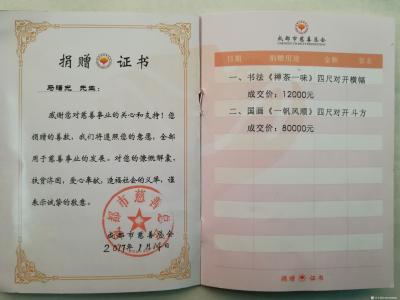 捐赠 证书
先生：
感谢您对慈善事业的关心和支持！您
捐赠的善款，我们将遵照您的意愿，全部
用于慈善事业的发展。对您的慷慨解囊，
扶贫济困，爱心奉献，造福社会的义举，谨
表示诚挚的敬意。
成都市慈善总会
2017年1月14日
成都市慈善总会
成都市慈善总会
日期 捐赠用途 金额 签名
一、书法《禅茶一味》四尺对开横幅
成交价：12000元
二、国画《一帆风顺》四尺对开斗方
成交价：80000元
捐赠 证书